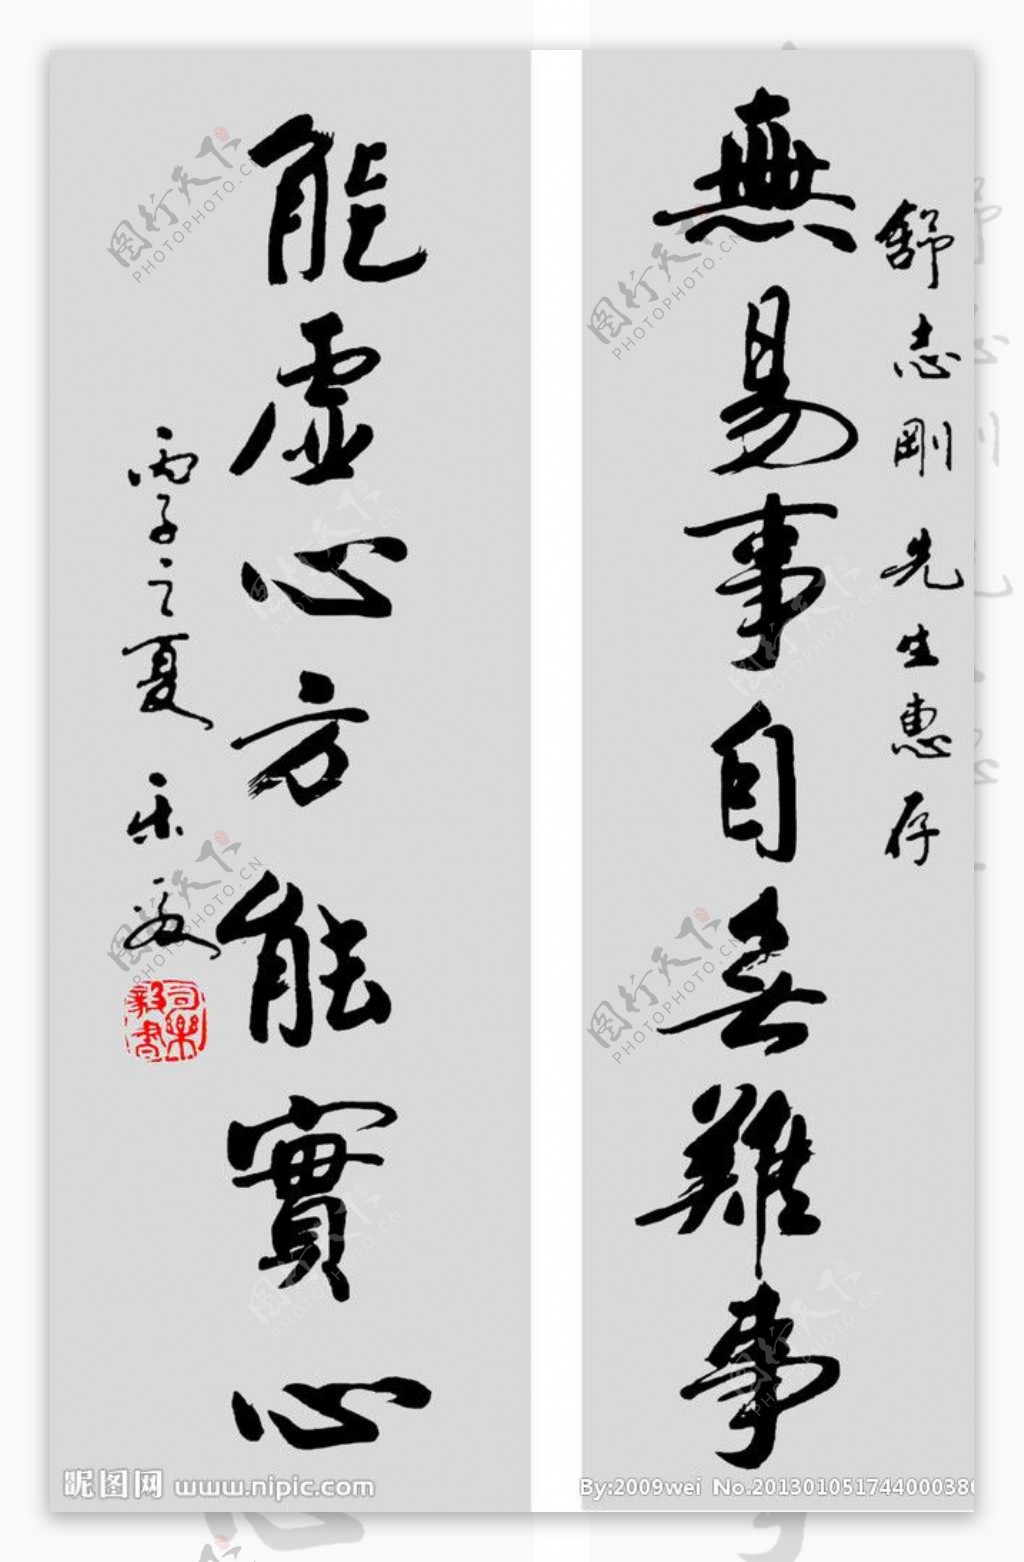 舒志剛先生惠存
無易事自無難事
能虛心方能實心
丙子之夏 樂毅
司樂毅書
昵图网 www.nipic.com
By:2009wei No.20130105174400038
图行天下 PHOTOPHOTO.CN